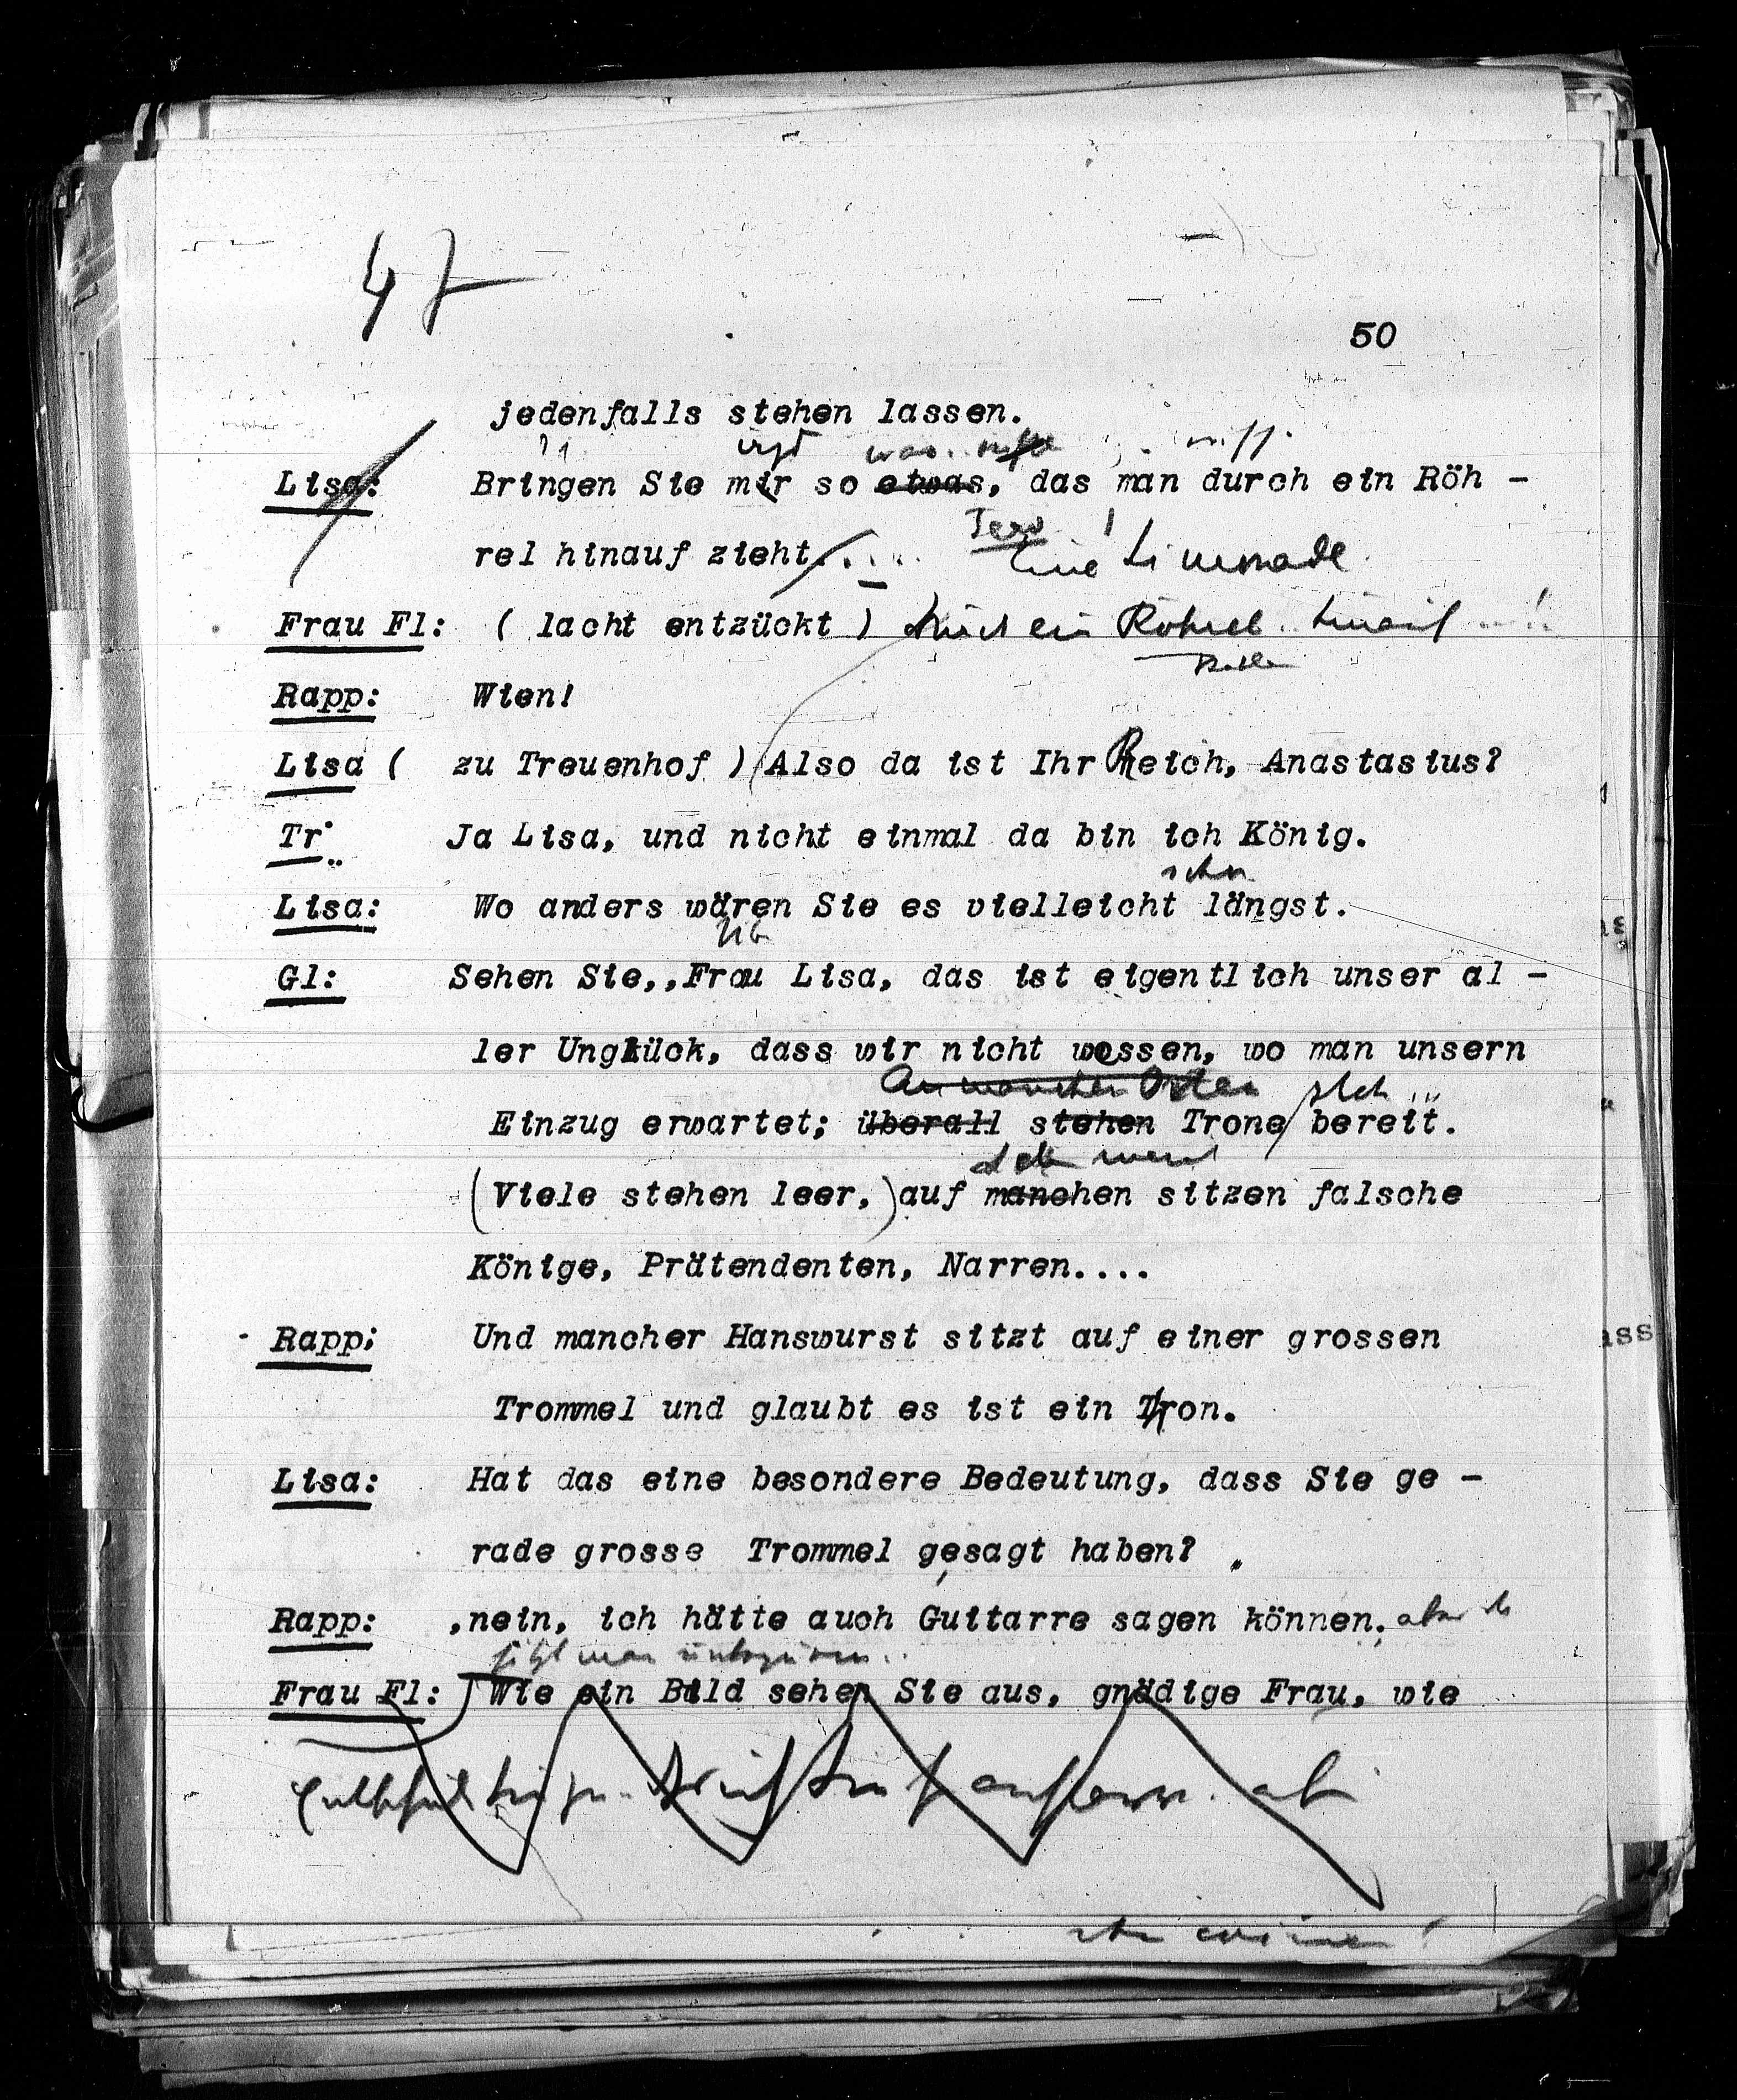 47
50
jedenfalls stehen lassen.
Lisa: Bringen Sie mir so etwas, das man durch ein Röh -
rel hinauf zieht... Eine Limonade
Frau Fl: ( lacht entzückt ) durch ein Röhrel.. hinauf ....!
Rapp: Wien!
Lisa ( zu Treuenhof ) Also da ist Ihr Reich, Anastasius?
Tr: Ja Lisa, und nicht einmal da bin ich König.
schon
Lisa: Wo anders wären Sie es vielleicht längst.
Gl: Sehen Sie,,Frau Lisa, das ist eigentlich unser al -
ler Unglück, dass wir nicht wossen, wo man unsern
An manchen Orten
Einzug erwartet; überall stehen Trone bereit.
(Viele stehen leer,) auf manchen sitzen falsche
Könige, Prätendenten, Narren....
Rapp: Und mancher Hanswurst sitzt auf einer grossen
Trommel und glaubt es ist ein Tron.
Lisa: Hat das eine besondere Bedeutung, dass Sie ge -
rade grosse Trommel gesagt haben?
Rapp: ,nein, ich hätte auch Guitarre sagen können, aber da
sitzt man
Frau Fl: Wie ein Bild sehen Sie aus, gnädige Frau, wie